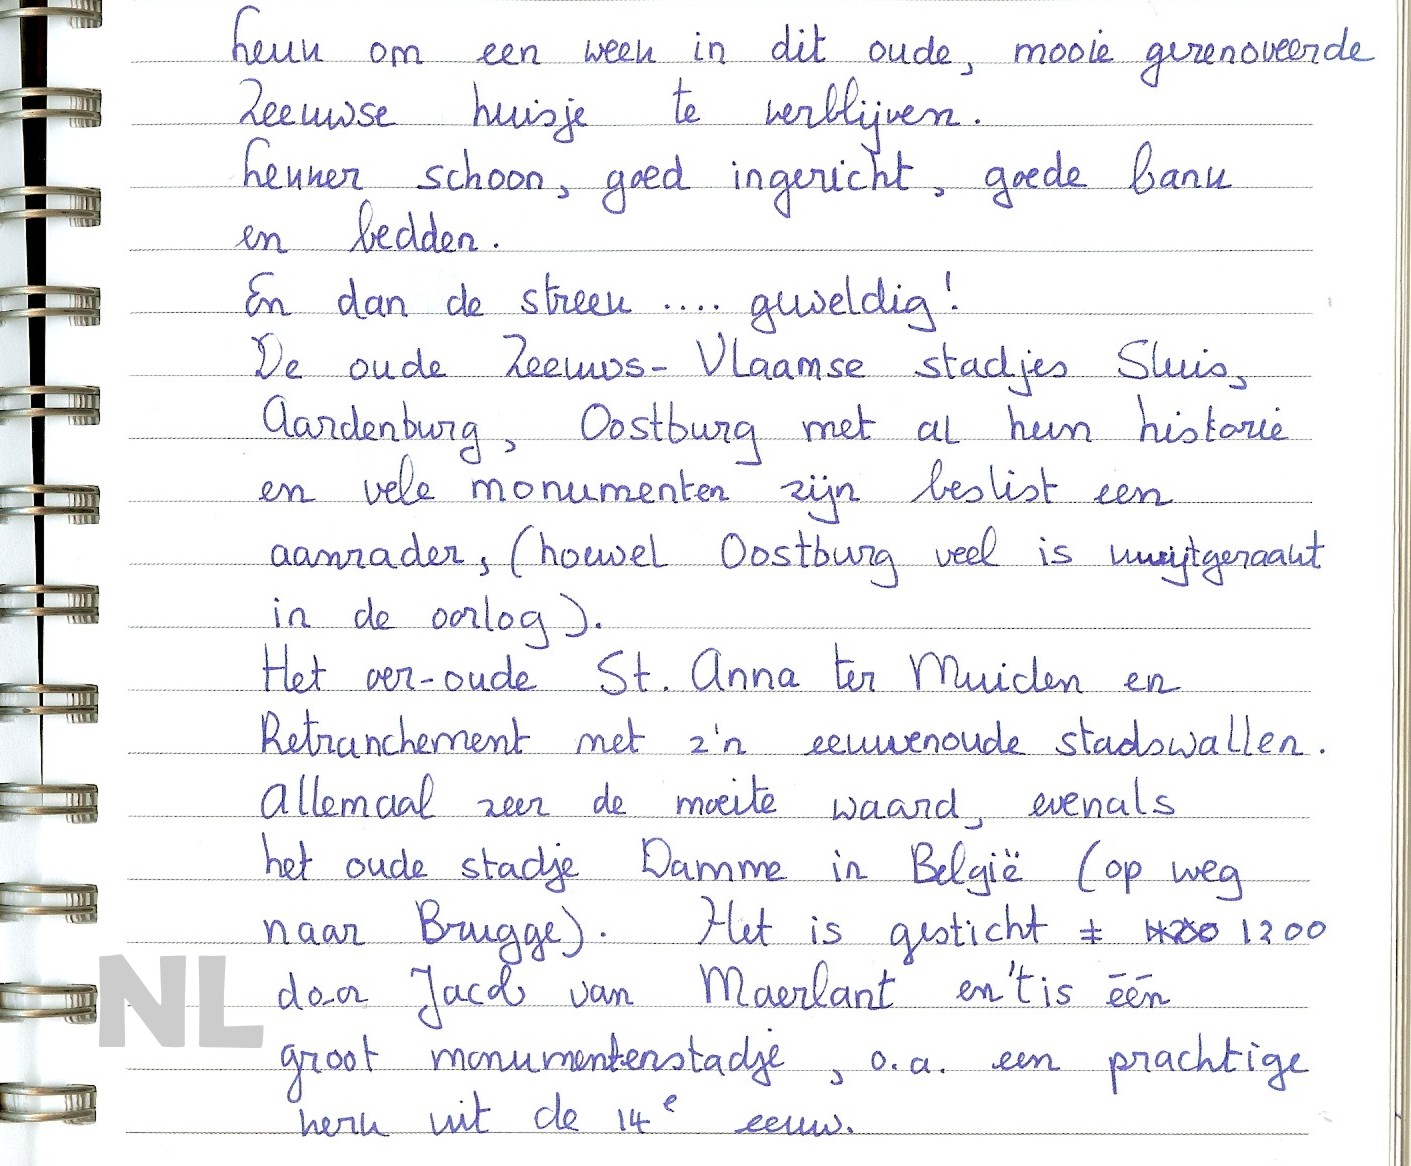 Leuk om een week in dit oude, mooie gerenoveerde
Zeeuwse huisje te verblijven.
Lekker schoon, goed ingericht, goede bank
en bedden.
En dan de streek .... geweldig!
De oude Zeeuws-Vlaamse stadjes Sluis,
Aardenburg, Oostburg met al hun historie
en vele monumenten zijn beslist een
aanrader, (hoewel Oostburg veel is kwijtgeraakt
in de oorlog).
Het oer-oude St. Anna ter Muiden en
Retranchement met z'n eeuwenoude stadswallen.
Allemaal zeer de moeite waard, evenals
het oude stadje Damme in België (op weg
naar Brugge). Het is gesticht ± 1200
door Jacob van Maerlant en 't is één
NL
groot monumentenstadje, o.a. een prachtige
kerk uit de 14e eeuw.